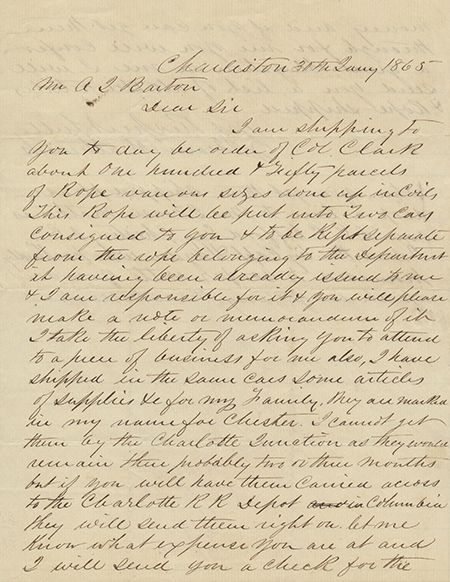 Charleston 30th Jany 1865
Mr A J Barton
Dear Sir
I am shipping to
you to day be order of Col Clark
about One hundred & Fifty parcels
of Rope various sizes done up in Coils
This Rope will be put into Two cars
consigned to you & to be kept separate
from the rope belonging to the Department
it haveing been already issend to me
& I am responsible for it & you will please
make a note or memorandum of it
I take the liberty of asking you to attend
to a piece of business for me also, I have
shipped in the same cars some articles
of supplies &c for my Family, they are marked
in my name for Chester. I cannot get
them by the Charlotte Junction as they would
remain there probably two or three months
but if you will have them carried across
to the Charlotte R R Depot and in Columbia
they will send them right on. let me
know what expense you are at and
I will send you a check for the